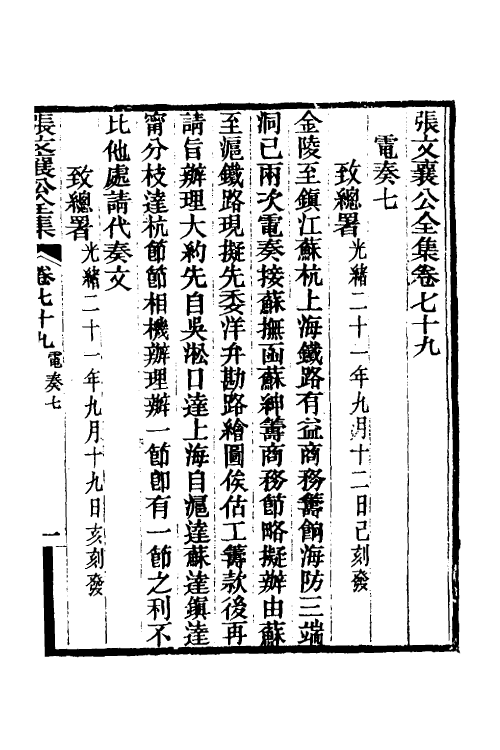 張文襄公全集卷七十九
電奏七
致總署光緒二十一年九月十二日巳刻發
金陵至鎮江蘇杭上海鐵路有益商務籌餉海防三端
洞已兩次電奏接蘇撫函蘇紳籌商務節略擬辦由蘇
至滬鐵路現擬先委洋弁勘路繪圖俟估工籌款後再
請旨辦理大約先自吳淞口達上海自滬達蘇達鎮達
甯分枝達杭節節相機辦理辦一節卽有一節之利不
比他處請代奏文
致總署光緒二十一年九月十九日亥刻發
張文襄公全集 卷七十九 電奏七 一